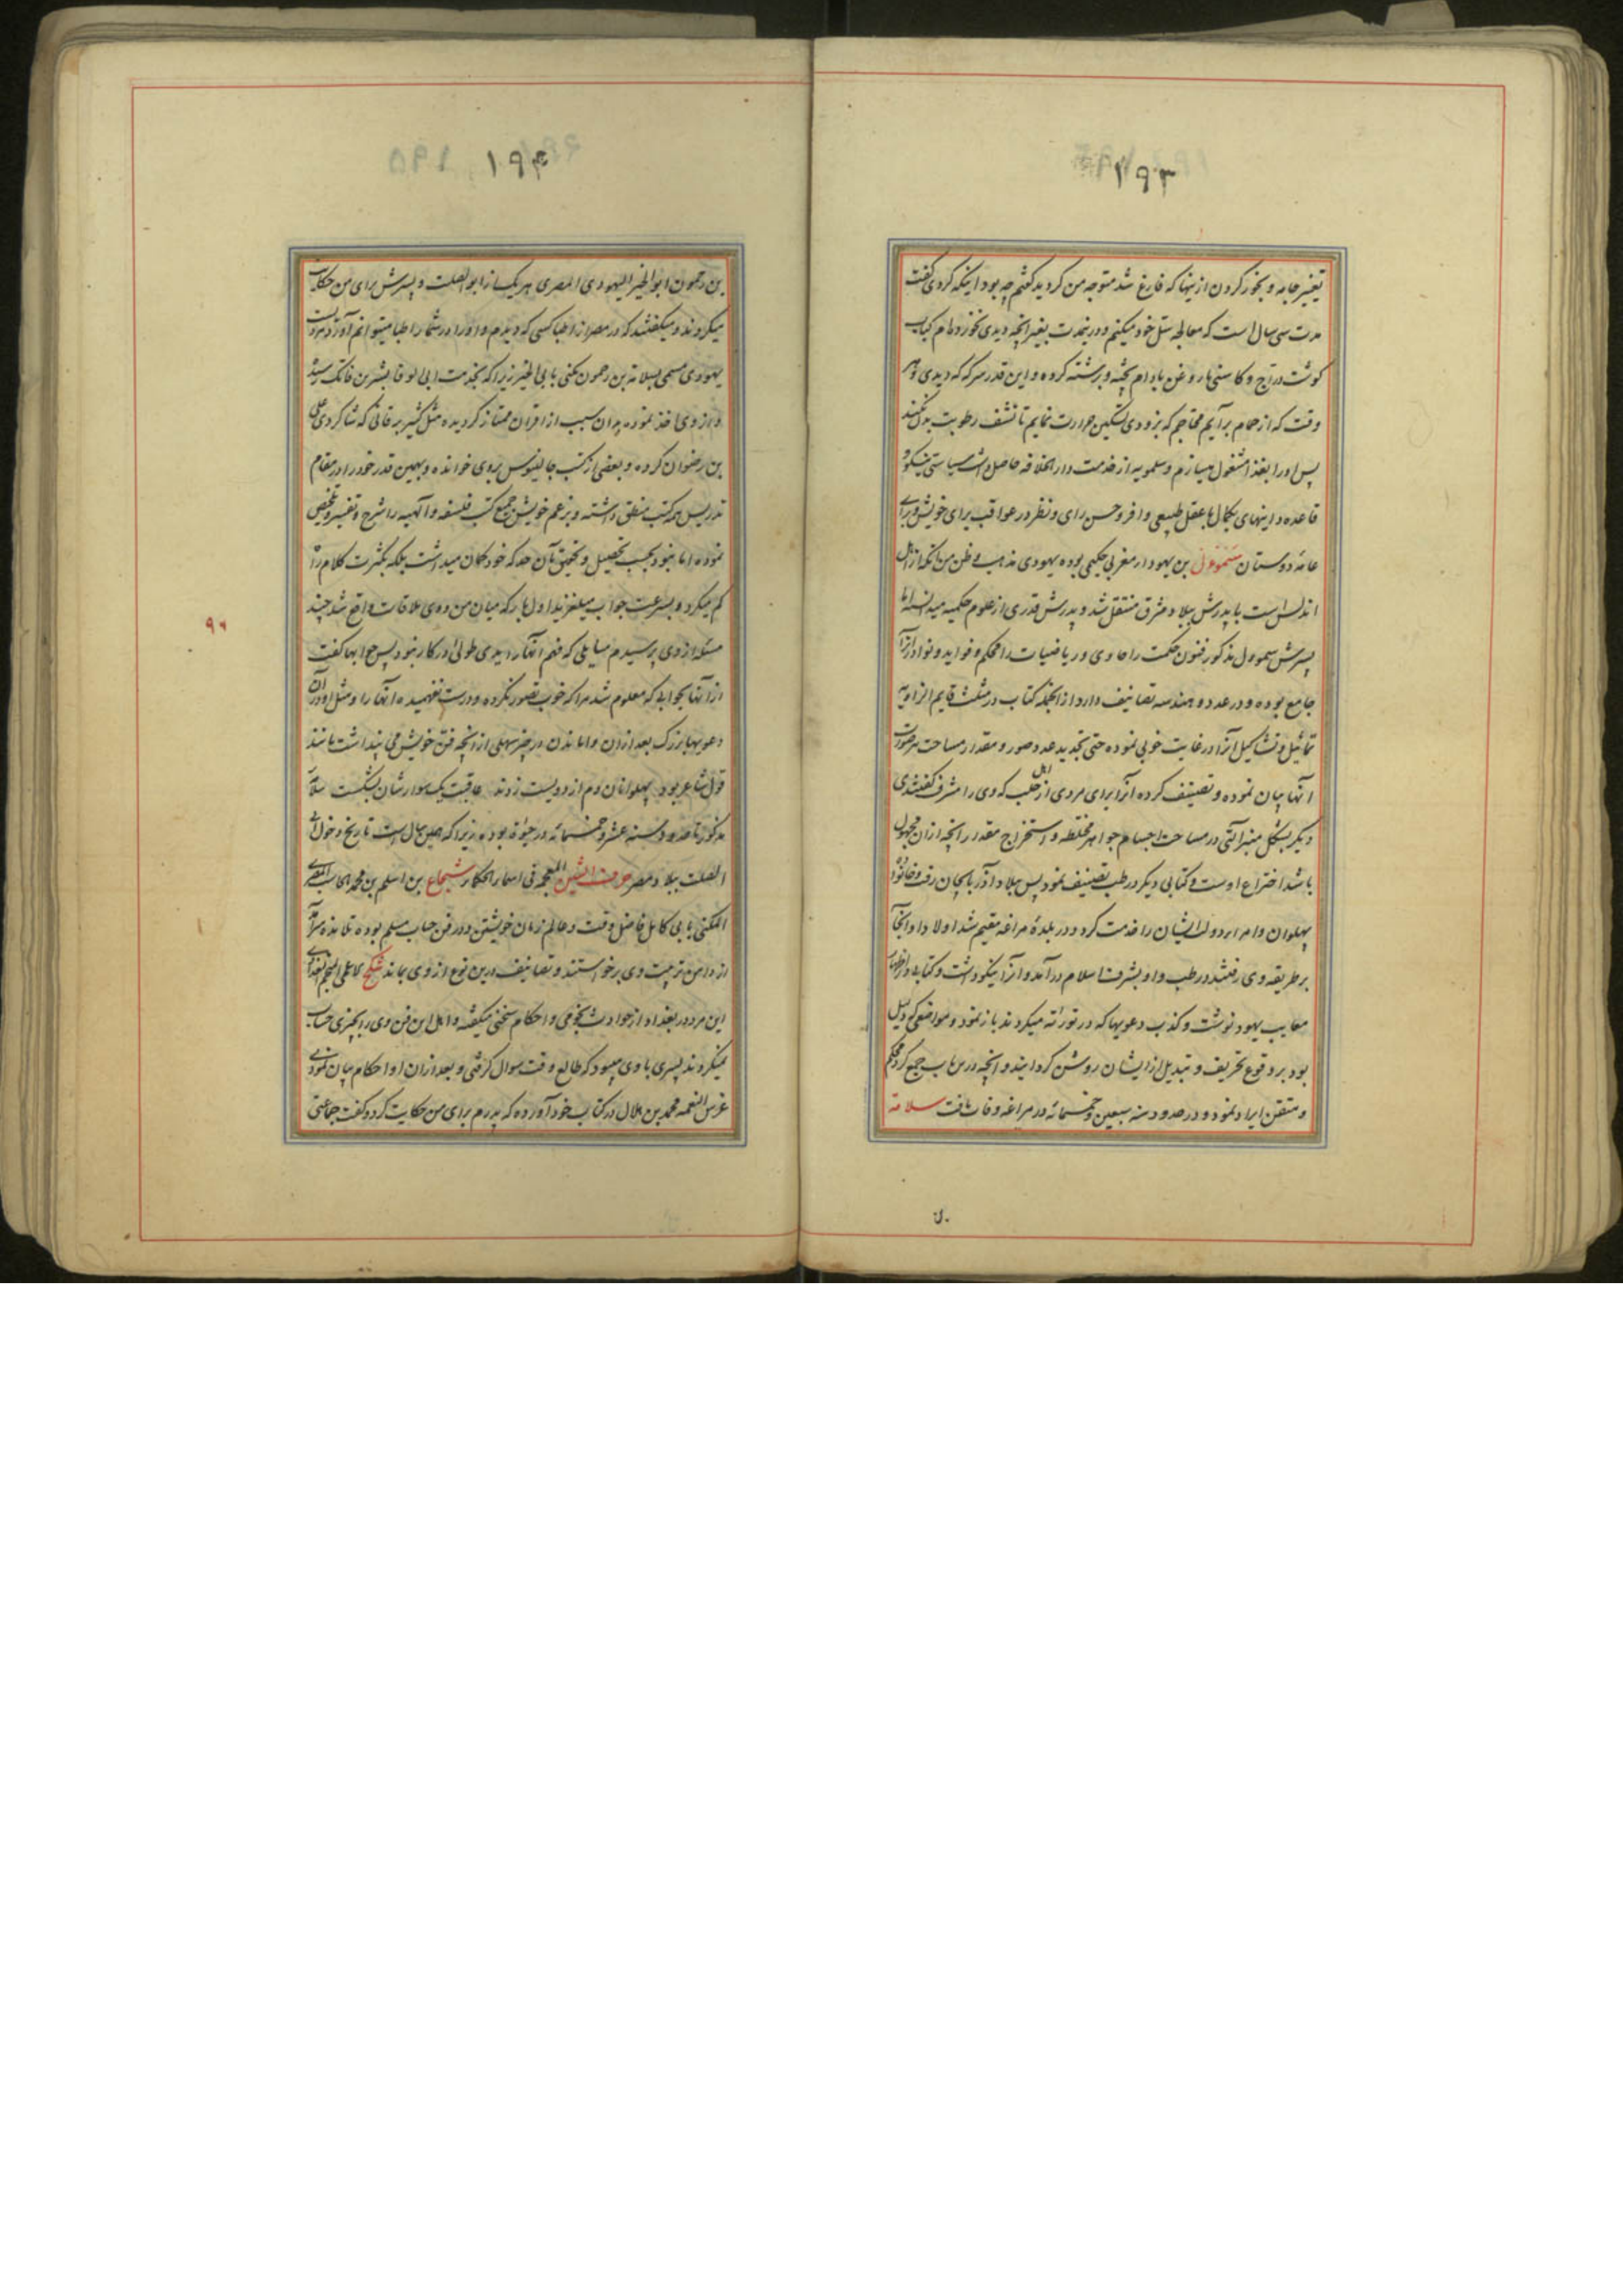 ۱۹۳
تغییر جامه و بخور کردن ازینها که فارغ شد متوجه من کردید کفتم چه بود اینکه کردی کفت
مدت سی سال است که معالجه سل خود میکنم و درینمدت بغیر آنچه دیدی نخورده‌ام کباب
کوشت دراج و کاسنی با روغن بادام پخته و برشته کرده و این قدر سرکه که دیدی و هر
وقت که از حمام برآیم محتاجم که بزودی تسکین حرارت نمایم تا نشف رطوبت بدن نکند
پس اورا بغذا مشغول میسازم و سلمویه از خدمت دار الخلافه حاصل داشت سیاستی نیکو و
قاعده و اینهای بکمال با عقل طبیعی وافر و حسن رای و نظر در عواقب برای خویش و برای
عامه دوستان سموءل بن یهودا مغربی حکیمی بوده یهودی مذهب و ظن من آنکه از اهل
اندلس است با پدرش ببلاد مشرق منتقل شد و پدرش قدری از علوم حکمیه میدانسته اما
پسرش سموول مذکور فنون حکمت را حاوی و ریاضیات را محکم و فواید و نوادر آنرا
جامع بوده و در عدد و هندسه تصانیف دارد از انجمله کتاب در مثلث قایم الزاویه
تماثیل و تشاکیل آنرا در غایت خوبی نموده حتی تجدید عدد صور و مقدار مساحت هر صورت
آنها بیان نموده و تصنیف کرده آنرا برای مردی از اهل حلب که وی را مشرف کفتندی
دیکر بشکل منبر آلتی در مساحت اجسام جواهر مختلطه و استخراج مقدار آنچه ازان مجهول
باشد اختراع اوست و کتابی دیکر در طب تصنیف نمود پس ببلاد آذربایجان رفت و خانواده
پهلوان و امراء دولت ایشان را خدمت کرد و در بلده مراغه مقیم شد اولاد او آنجا
بر طریقه وی رفتند در طب و او بشرف اسلام درآمد و آنرا نیکو داشت و کتابی در اظهار
معایب یهود نوشت و کذب دعویها که در توراته میکردند باز نمود و مواضعی که دلیل
بود بر وقوع تحریف و تبدیل از ایشان روشن کردانید و آنچه درین باب جمع کرد محکم
و متقن ایراد نمود و در حدود سنه سبعین و خمسمائه در مراغه وفات یافت سلامة
۱۹۴
بن رحمون ابو الخیر الیهودی المصری هر یک از ابو الصلت و پسرش برای من حکایت
میکردند و میکفتند که در مصر از اطبا کسی که دیدم و اورا در شمار اطبا میتوانم آورد مردیست
یهودی مسمی بسلامة بن رحمون مکنی بابی الخیر زیرا که بخدمت ابی الوفا بشر بن فاتک رسیده
و از وی اخذ نموده بدان سبب از اقران ممتاز کردیده مثل کثیر برقانی که شاکردی علی
بن رضوان کرده و بعضی از کتب جالینوس بروی خوانده و بهمین قدر خود را در مقام
تدریس همه کتب منطق داشته و بزعم خویش جمیع کتب فلسفه و آلهیه را شرح و تفسیر و تلخیص
نموده اما نبود بحسب تحصیل و تحقیق بآن حد که خود کمان میداشت بلکه بکثرت کلام را
کم میکرد و بسرعت جواب میلغزید اول بار که میان من و وی ملاقات واقع شد چند
مسئله از وی پرسیدم مسایلی که فهم آنها را ایدی طولی در کار نبود پس جوابها کفت
از آنها بجوابی که معلوم شد مرا که خوب تصور نکرده و درست نفهمیده آنها را و مثل او در آن
دعویها بزرک بعد ازان واماندن در چیز سهلی از آنچه فن خویش می پنداشت مانند
قول شاعر بود پهلوانان دم از دویست زدند عاقبت یک سوارشان بشکست سلامه
مذکور تا حدود سنه عشر و خمسمائه در حیوة بوده زیرا که همین سال است تاریخ دخول ابی
الصلت ببلاد مصر حرف الشین المعجمه فی اسماء الحکماء شجاع بن اسلم بن محمد الحاسب المصری
المکنی بابی کامل فاضل وقت و عالم زمان خویشتن و در فن حساب مسلم بوده تلامذه سرآمد
از دامن تربیت وی برخواستند و تصانیف درین نوع از وی بماند شکح لاعلی المنجم البغدادی
این مرد در بغداد از حوادث نجومی و احکام سخنی میکفته و اهل این فن وی را بچیزی حساب
نمیکردند پسری با وی میبود که طالع وقت سوال کرفتی و بعد ازان او احکام بیان نمودی
غرس النعمه محمد بن هلال در کتاب خود آورده که پدرم برای من حکایت کرد و کفت جماعتی